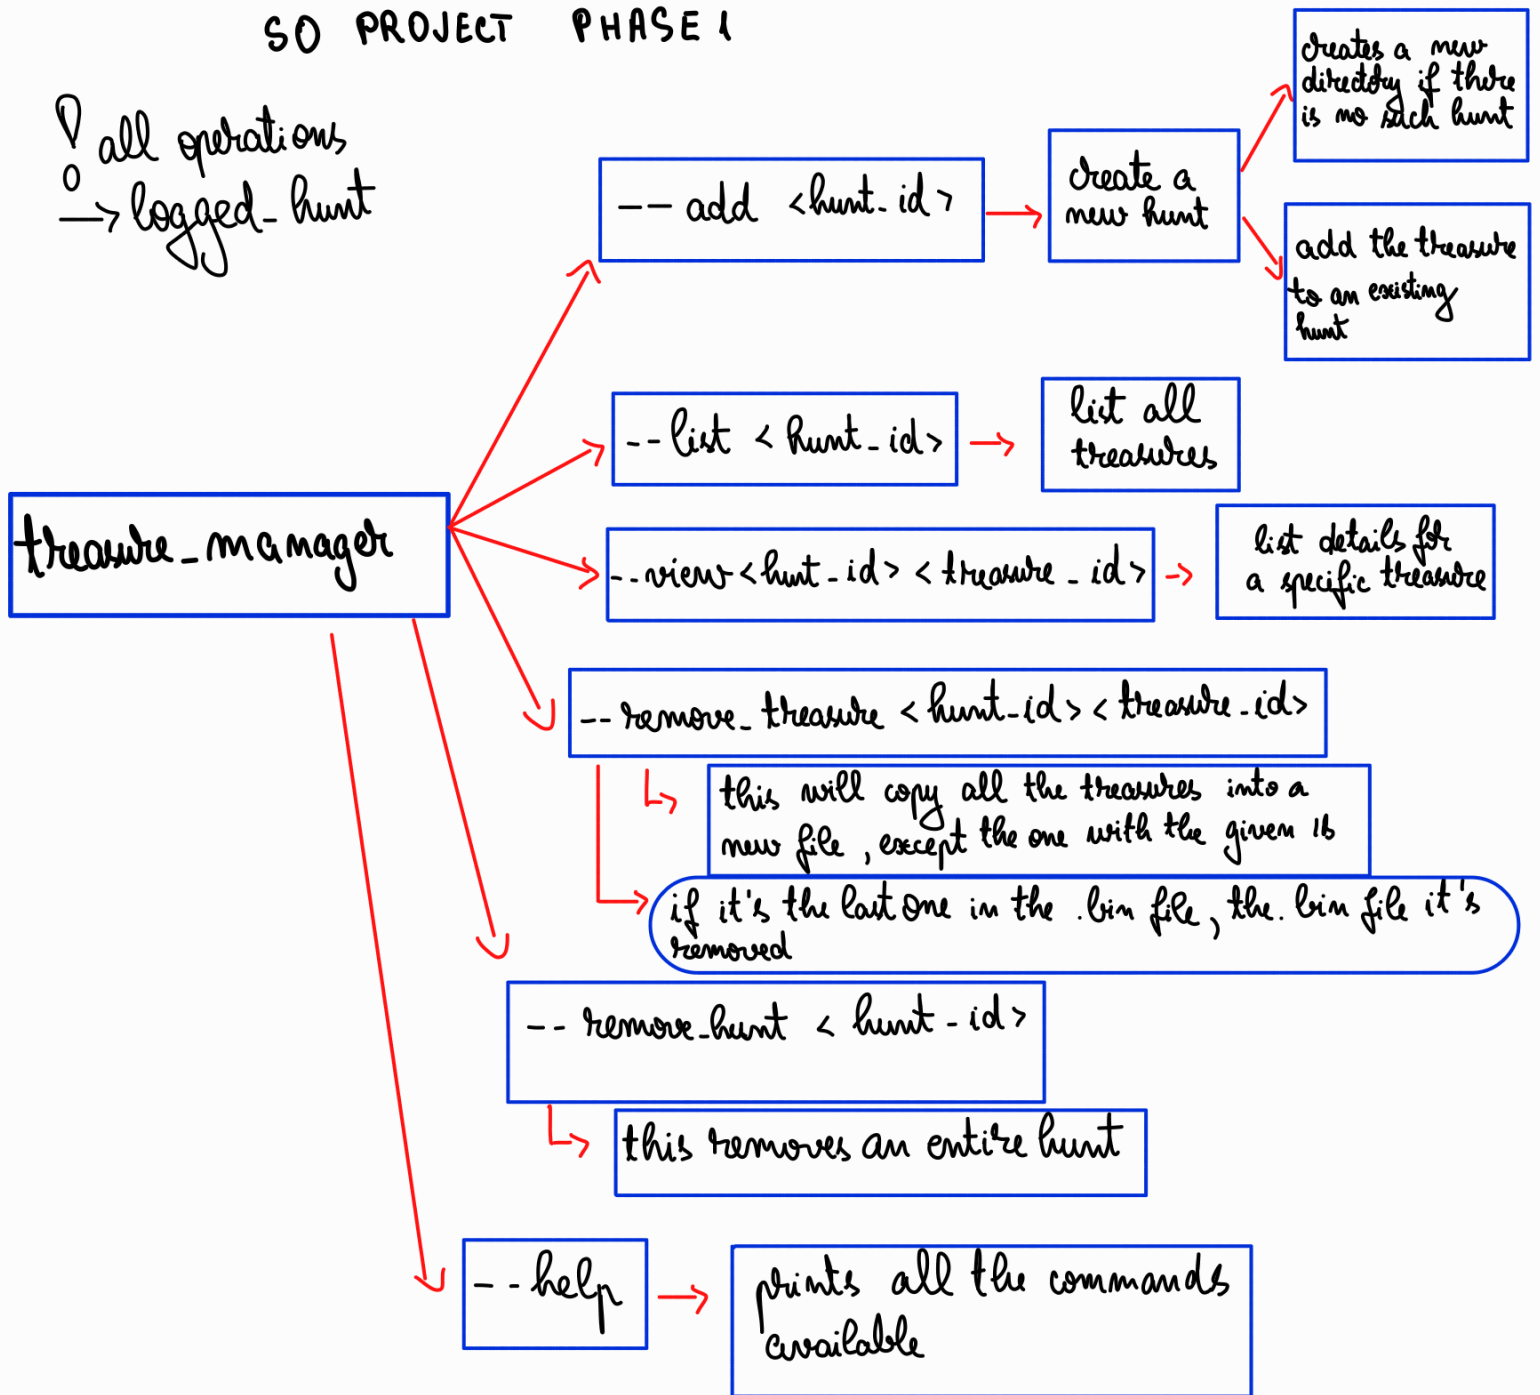 SO PROJECT PHASE 1
! all operations
→ logged_hunt
-- add <hunt_id>
create a
new hunt
creates a new
directory if there
is no such hunt
add the treasure
to an existing
hunt
-- list <hunt_id>
list all
treasures
treasure_manager
-- view <hunt_id> <treasure_id>
list details for
a specific treasure
-- remove_treasure <hunt_id> <treasure_id>
this will copy all the treasures into a
new file, except the one with the given ID
if it's the last one in the .bin file, the .bin file it's
removed
-- remove_hunt <hunt_id>
this removes an entire hunt
-- help
prints all the commands
available